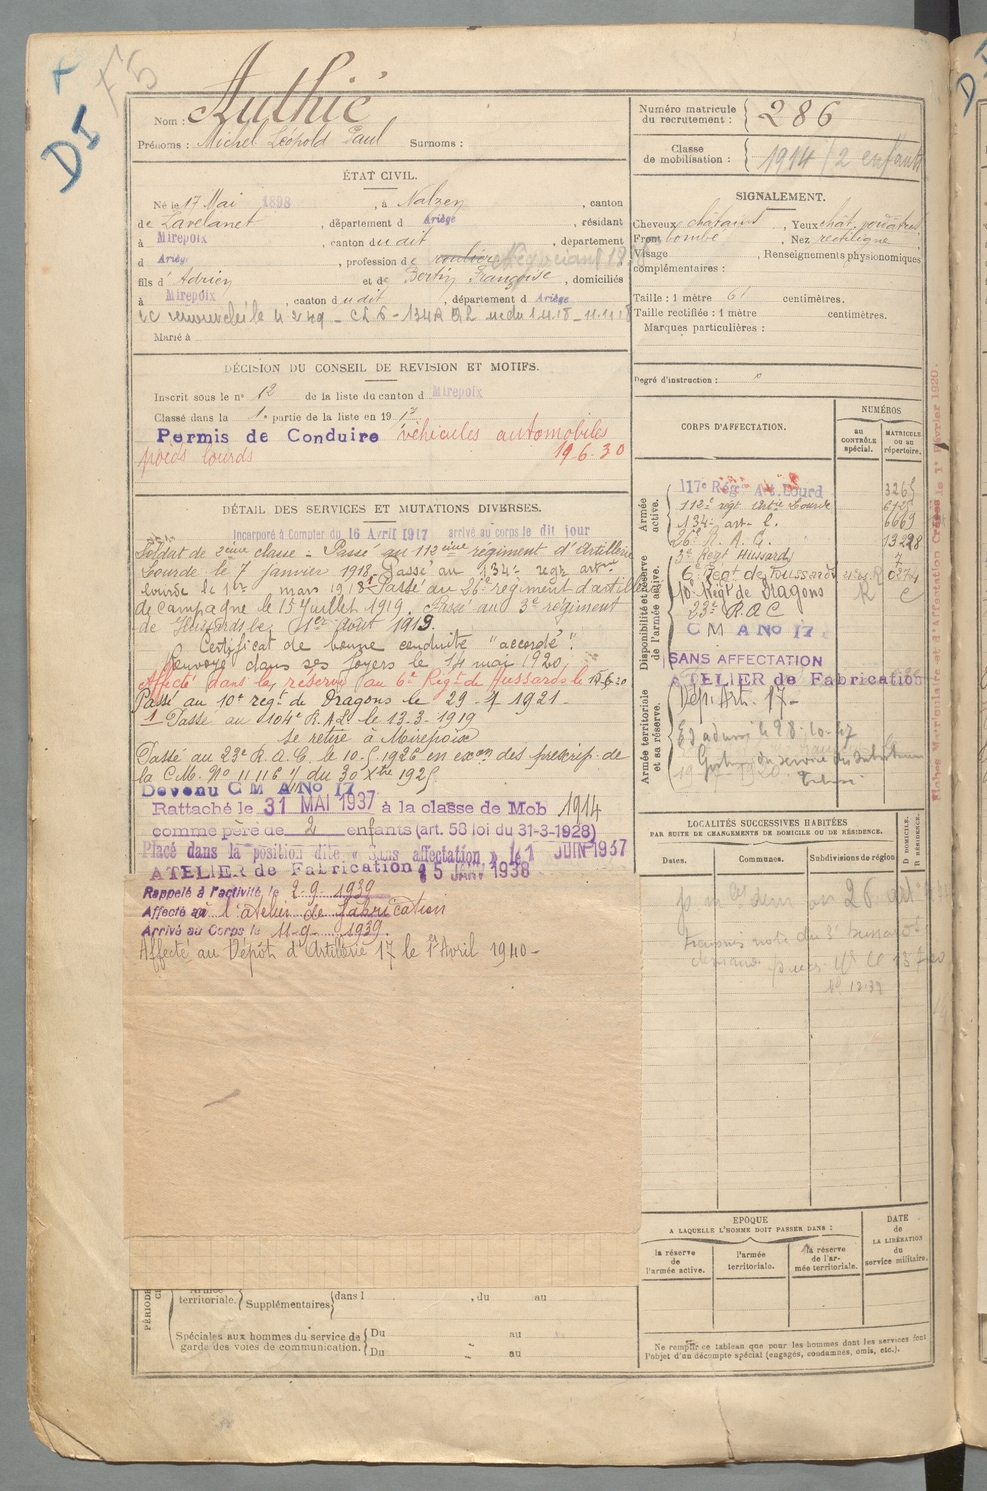 DI
F5
Nom : Authié
Prénoms : Michel Léopold Paul Surnoms :
Numéro matricule du recrutement : 286
Classe de mobilisation : 1914 / 2 enfants
ÉTAT CIVIL.
Né le 17 Mai 1898, à Nalzen, canton
de Lavelanet, département d Ariège, résidant
à Mirepoix, canton dudit, département
d Ariège, profession de roulier Négociant
fils d'Adrien et de Bertin Françoise, domiciliés
à Mirepoix, canton dudit, département d Ariège
Marié à
SIGNALEMENT.
Cheveux châtains, Yeux chat.
Front bombé, Nez rectiligne
Visage, Renseignements physionomiques
complémentaires :
Taille : 1 mètre 61 centimètres.
Taille rectifiée : 1 mètre centimètres.
Marques particulières :
Degré d'instruction :
DÉCISION DU CONSEIL DE REVISION ET MOTIFS.
Inscrit sous le n° 12 de la liste du canton d Mirepoix
Classé dans la 1e partie de la liste en 1917
Permis de Conduire véhicules automobiles
poids lourds 19-6-30
DÉTAIL DES SERVICES ET MUTATIONS DIVERSES.
Incorporé à Compter du 16 Avril 1917 arrivé au corps le dit jour
Soldat de 2ème classe - Passé au 112ème régiment d'Artillerie
Lourde le 7 janvier 1918. Passé au 134e regt artie
lourde le 1er mars 1918. Passé au 26e régiment d'artillerie
de campagne le 15 Juillet 1919. Passé au 3e régiment
de Hussards le 1er août 1919.
Certificat de bonne conduite "accordé".
Renvoyé dans ses foyers le 14 mai 1920
Affecté dans la réserve au 6e Régt de Hussards le
Passé au 10e regt de Dragons le 29-4-1921-
1 Passé au 104e R.A.L. le 13-3-1919
Se retire à Mirepoix
Passé au 23e R.A.C. le 10.5.1926 en exon des prescrip. de
la C.M. N° 11116 du 30 Xbre 1925
Devenu C M A No 17
Rattaché le 31 MAI 1937 à la classe de Mob 1914
comme père de 2 enfants (art. 58 loi du 31-3-1928)
Placé dans la position dite « Sans affectation » le 1 JUIN 1937
ATELIER de Fabrication 15 JANV 1938
Rappelé à l'activité, le 2-9-1939
Affecté à l'atelier de fabrication
Arrivé au Corps le 11-9-1939.
Affecté au Dépôt d'Artillerie 17 le 1er Avril 1940 -
CORPS D'AFFECTATION.
NUMÉROS
au CONTRÔLE spécial.
MATRICULE ou au répertoire.
Armée active.
117e Rég. Art. Lourd 3265
112e régt Artie Lourde
134e art. L. 6669
26e R.A.C.
3e Régt Hussards
Disponibilité et réserve de l'armée active.
6e Régt de Hussards
10e Régt de Dragons
23e R.A.C
C M A No 17
SANS AFFECTATION
ATELIER de Fabrication
Armée territoriale et sa réserve.
Dép. Art. 17-
Fiches Matriculaire et d'Affectation Créées le 1er Février 1920.
LOCALITÉS SUCCESSIVES HABITÉES
PAR SUITE DE CHANGEMENTS DE DOMICILE OU DE RÉSIDENCE.
Dates. Communes. Subdivisions de région
D DOMICILE. R RÉSIDENCE.
ÉPOQUE
A LAQUELLE L'HOMME DOIT PASSER DANS :
DATE de LA LIBÉRATION du service militaire.
la réserve de l'armée active.
l'armée territoriale.
la réserve de l'armée territoriale.
Ne remplir ce tableau que pour les hommes dont les services font
l'objet d'un décompte spécial (engagés, condamnés, omis, etc.).
territoriale. Supplémentaires dans l , du au
Spéciales aux hommes du service de garde des voies de communication.
Du au
Du au